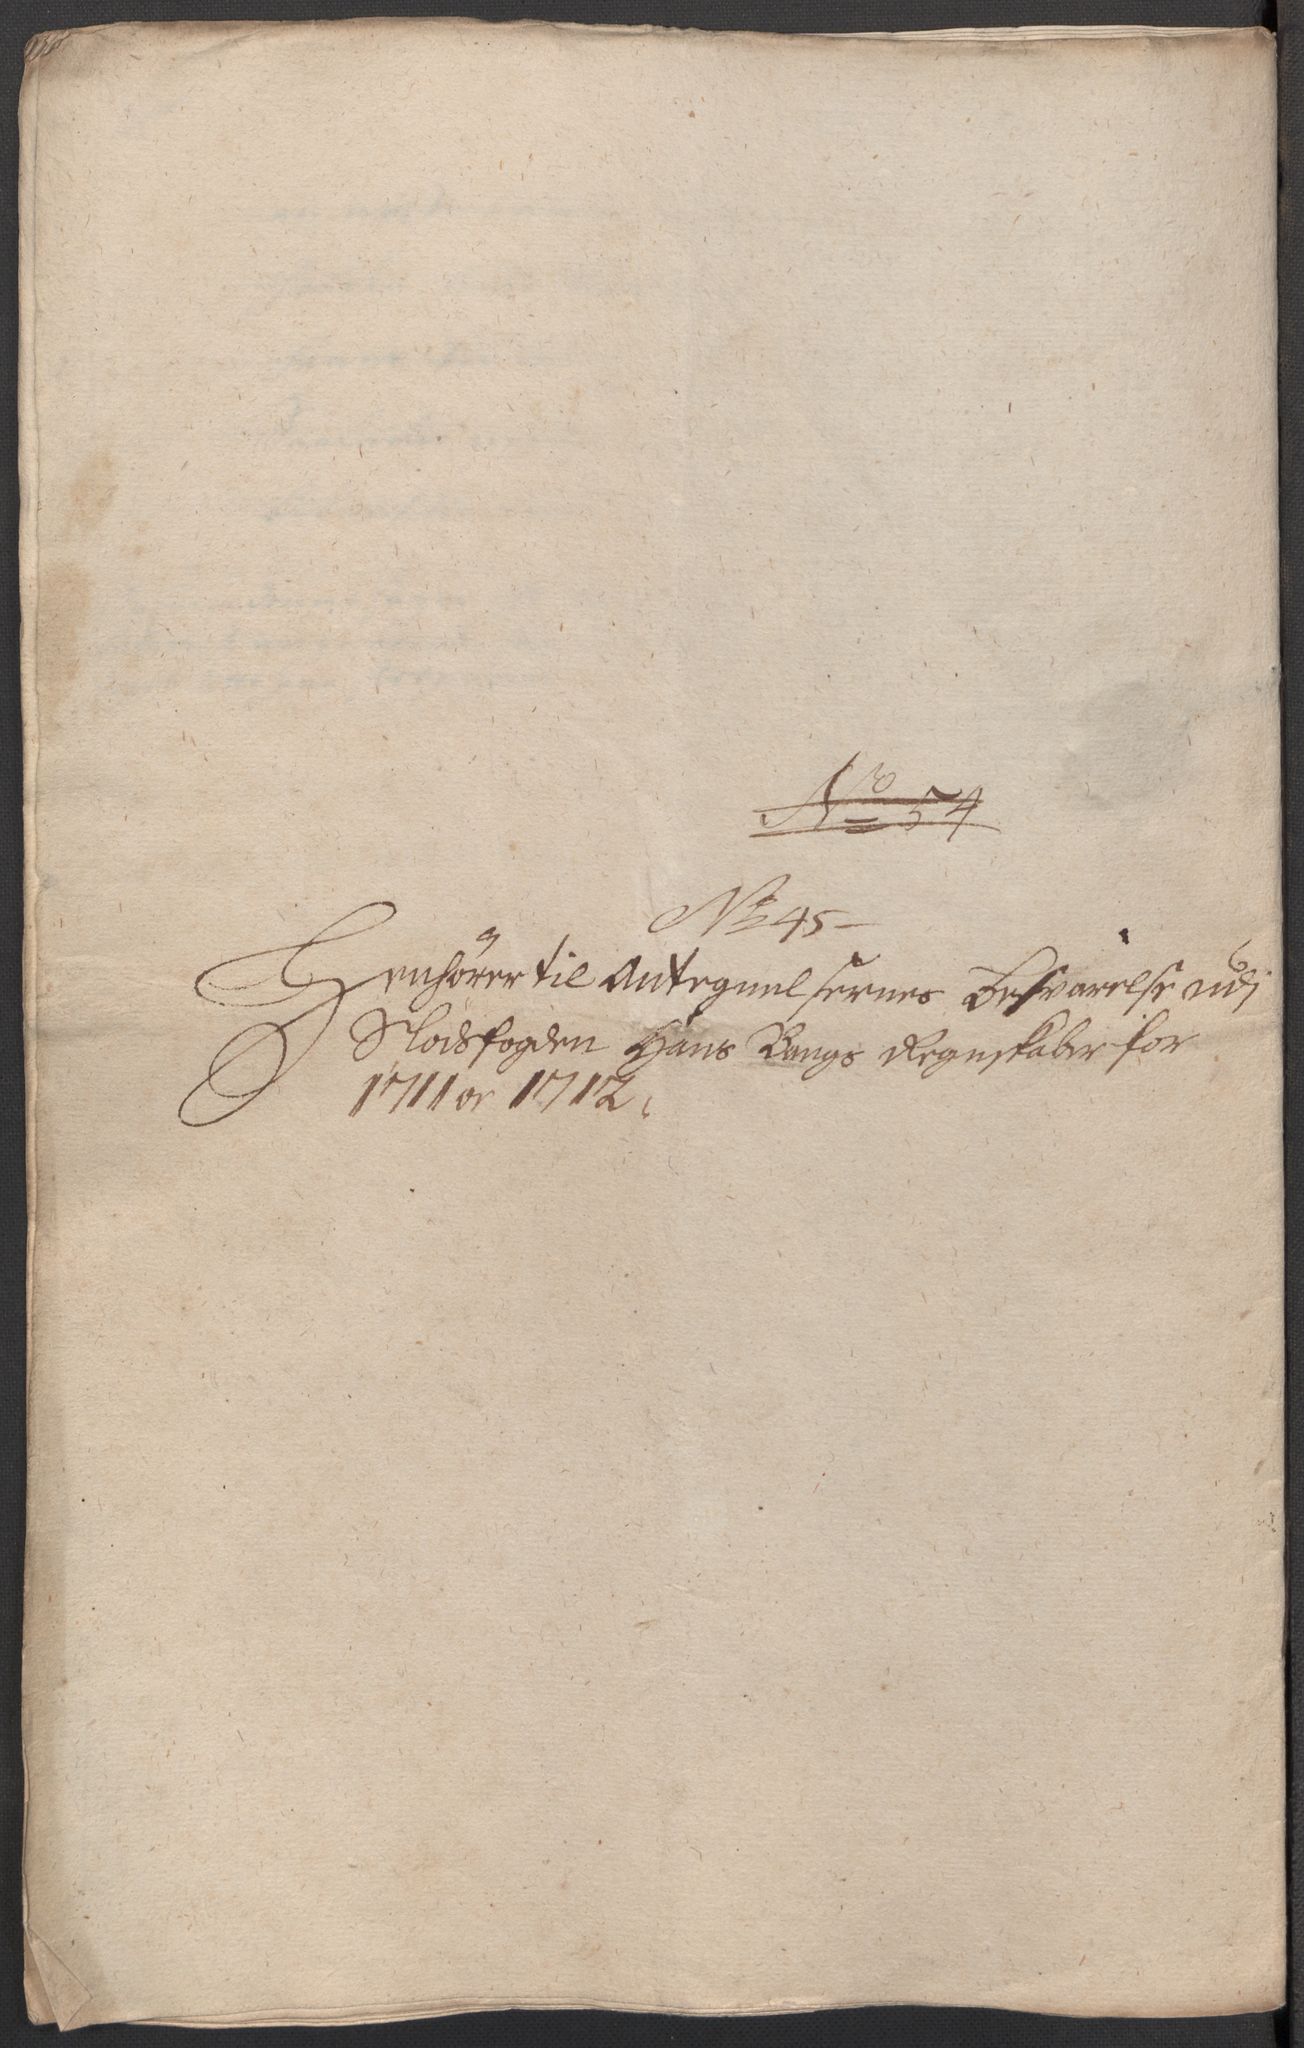 No 54
No 45
Henhører til Antegnelsernes Besvarelse udj
Slodsfogden Hans Bangs Regnskaber for
1711 or 1712.